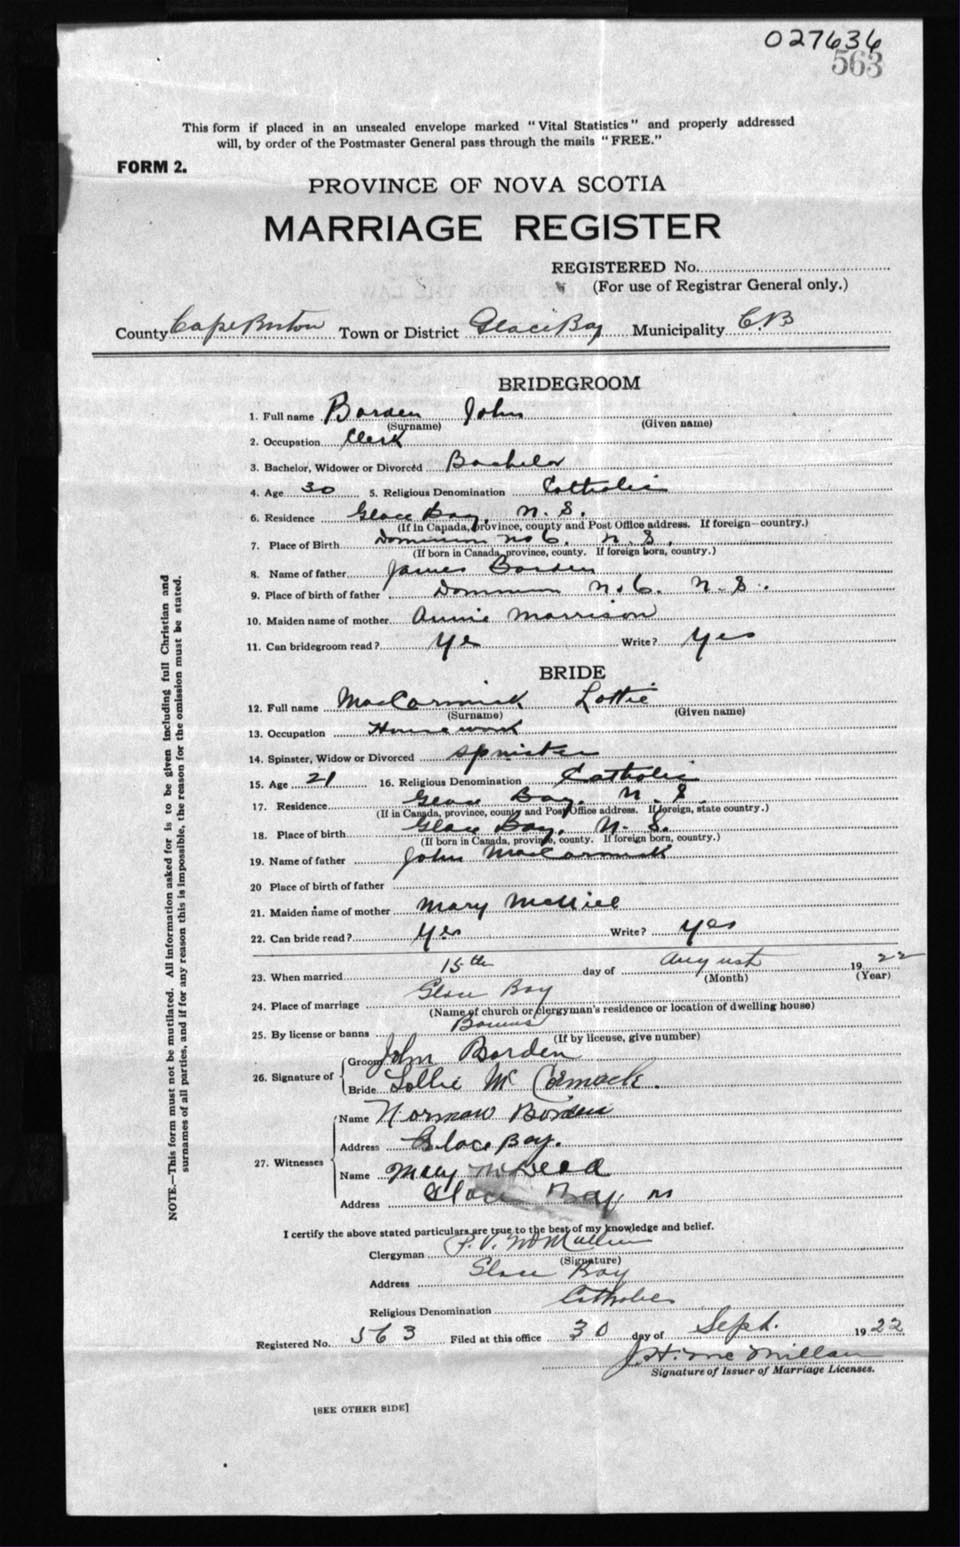 027636
563
This form if placed in an unsealed envelope marked "Vital Statistics" and properly addressed
will, by order of the Postmaster General pass through the mails "FREE."
FORM 2.
PROVINCE OF NOVA SCOTIA
MARRIAGE REGISTER
REGISTERED No.
(For use of Registrar General only.)
County Cape Breton Town or District Glace Bay Municipality C.B
BRIDEGROOM
1. Full name Borden John
(Surname) (Given name)
2. Occupation Clerk
3. Bachelor, Widower or Divorced Bachelor
4. Age 30 5. Religious Denomination Catholic
6. Residence Glace Bay, N.S.
(If in Canada, province, county and Post Office address. If foreign—country.)
7. Place of Birth Dominion No 6. N.S.
(If born in Canada, province, county. If foreign born, country.)
8. Name of father James Borden
9. Place of birth of father Dominion No. 6. N.S.
10. Maiden name of mother Annie Morrison
11. Can bridegroom read? Yes Write? Yes
BRIDE
12. Full name MacCormick Lottie
(Surname) (Given name)
13. Occupation Housework
14. Spinster, Widow or Divorced Spinster
15. Age 21 16. Religious Denomination Catholic
17. Residence Glace Bay, N.S.
(If in Canada, province, county and Post Office address. If foreign, state country.)
18. Place of birth Glace Bay, N.S.
(If born in Canada, province, county. If foreign born, country.)
19. Name of father John MacCormick
20 Place of birth of father
21. Maiden name of mother Mary McNeil
22. Can bride read? Yes Write? Yes
23. When married 15th day of August 1922
(Month) (Year)
24. Place of marriage Glace Bay
(Name of church or clergyman's residence or location of dwelling house)
25. By license or banns Banns
(If by license, give number)
26. Signature of Groom John Borden
Bride Lottie McCormack.
27. Witnesses Name Norman Borden
Address Glace Bay.
Name Mary McLeod
Address Glace Bay
I certify the above stated particulars are true to the best of my knowledge and belief.
Clergyman P. V. McMullin
(Signature)
Address Glace Bay
Religious Denomination Catholic
Registered No. 563 Filed at this office 30 day of Sept. 1922
J. H. McMillan
Signature of Issuer of Marriage Licenses.
[SEE OTHER SIDE]
NOTE.—This form must not be mutilated. All information asked for is to be given including full Christian and
surnames of all parties, and if for any reason this is impossible, the reason for the omission must be stated.